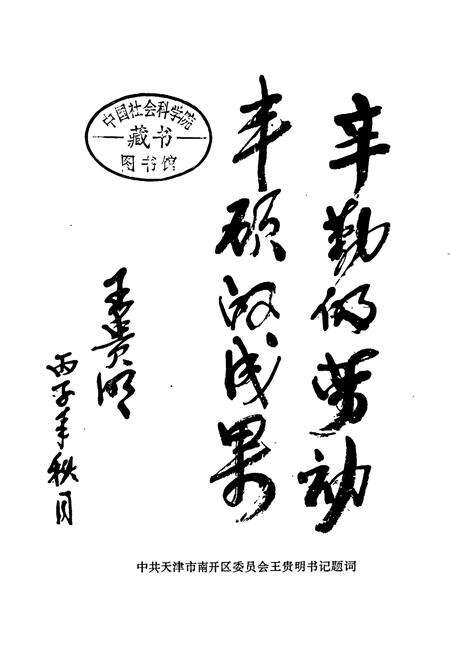 辛勤的劳动
丰硕的成果
王贵明
丙子年秋月
中国社会科学院
藏书
图书馆
中共天津市南开区委员会王贵明书记题词